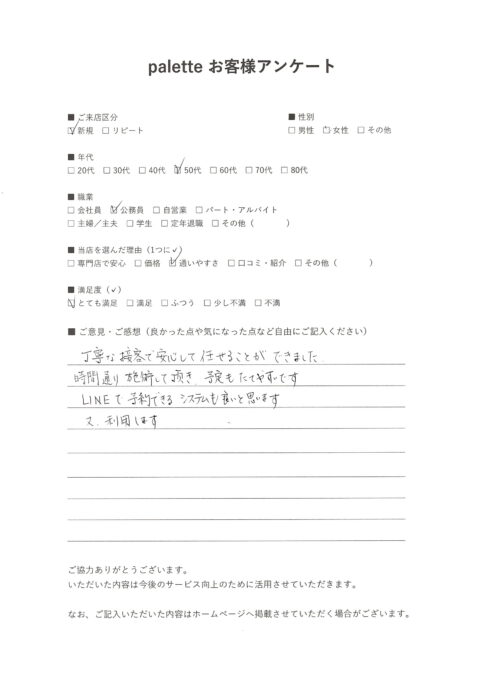 palette お客様アンケート
■ ご来店区分
☑ 新規 □ リピート
■ 性別
□ 男性 □ 女性 □ その他
■ 年代
□ 20代 □ 30代 □ 40代 ☑ 50代 □ 60代 □ 70代 □ 80代
■ 職業
□ 会社員 ☑ 公務員 □ 自営業 □ パート・アルバイト
□ 主婦／主夫 □ 学生 □ 定年退職 □ その他（　　　　）
■ 当店を選んだ理由（1つに✓）
□ 専門店で安心 □ 価格 ☑ 通いやすさ □ 口コミ・紹介 □ その他（　　　　）
■ 満足度（✓）
☑ とても満足 □ 満足 □ ふつう □ 少し不満 □ 不満
■ ご意見・ご感想（良かった点や気になった点など自由にご記入ください）
丁寧な接客で安心して任せることができました
時間通り施術して頂き、予定もたてやすいです
LINEで予約できるシステムも良いと思います
又、利用します
ご協力ありがとうございます。
いただいた内容は今後のサービス向上のために活用させていただきます。
なお、ご記入いただいた内容はホームページへ掲載させていただく場合がございます。